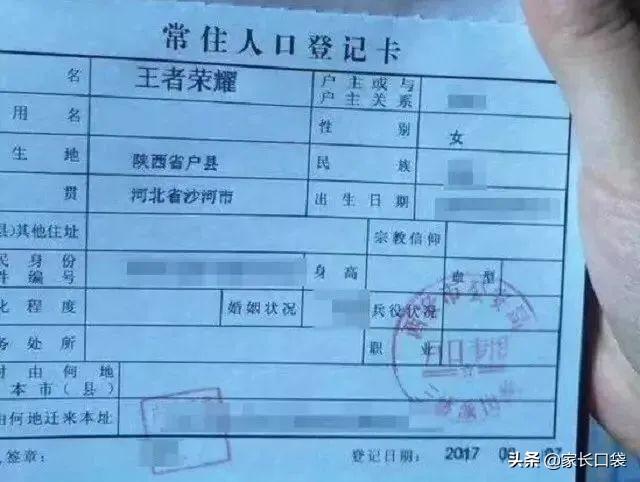 常住人口登记卡
名 王者荣耀 户主或与
户主关系
用名 性别 女
生地 陕西省户县 民族
贯 河北省沙河市 出生日期
县)其他住址 宗教信仰
民身份
件编号 身高 血型
化程度 婚姻状况 兵役状况
务处所 职业
时由何地
本市(县)
由何地迁来本址
签章: 登记日期: 2017
头条 @家长口袋